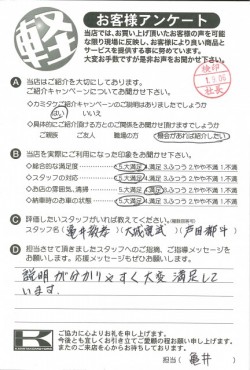 軽
お客様アンケート
当店では、お買い上げ頂いたお客様の声を可能
な限り現場に反映し、お客様により良い商品と
サービスを提供する事に努めています。
大変お手数ですが是非お声をお聞かせ下さい。
検印
社長
A 当店はご紹介を大切にしております。
ご紹介キャンペーンについてお聞かせ下さい。
◇カミタケご紹介キャンペーンのご説明はありましたでしょうか
はい いいえ
◇具体的にご紹介頂ける方とのご関係をお聞かせ頂けますでしょうか
ご親族 ご友人 職場の方 機会があれば紹介したい
B 当店を実際にご利用になった印象をお聞かせ下さい。
◇総合的な満足度 5.大満足 4.満足 3.ふつう 2.やや不満 1.不満
◇スタッフの対応 5.大満足 4.満足 3.ふつう 2.やや不満 1.不満
◇お店の雰囲気、清掃 5.大満足 4.満足 3.ふつう 2.やや不満 1.不満
◇納車時のお車の状態 5.大満足 4.満足 3.ふつう 2.やや不満 1.不満
C 評価したいスタッフがいれば教えてください。(複数回答可)
スタッフ名( 亀井 大城 戸田 )
D 担当させて頂きましたスタッフへのご指摘、ご指導メッセージを
お願いします。応援メッセージもぜひお願いします。
説明が分かりやすく大変満足して
います。
K
ご協力に心よりお礼を申し上げます。
今後とも宜しくお引き立てご愛顧の程お願い申し上げます。
またのご来店を心からお待ちしております。
担当( 亀井 )